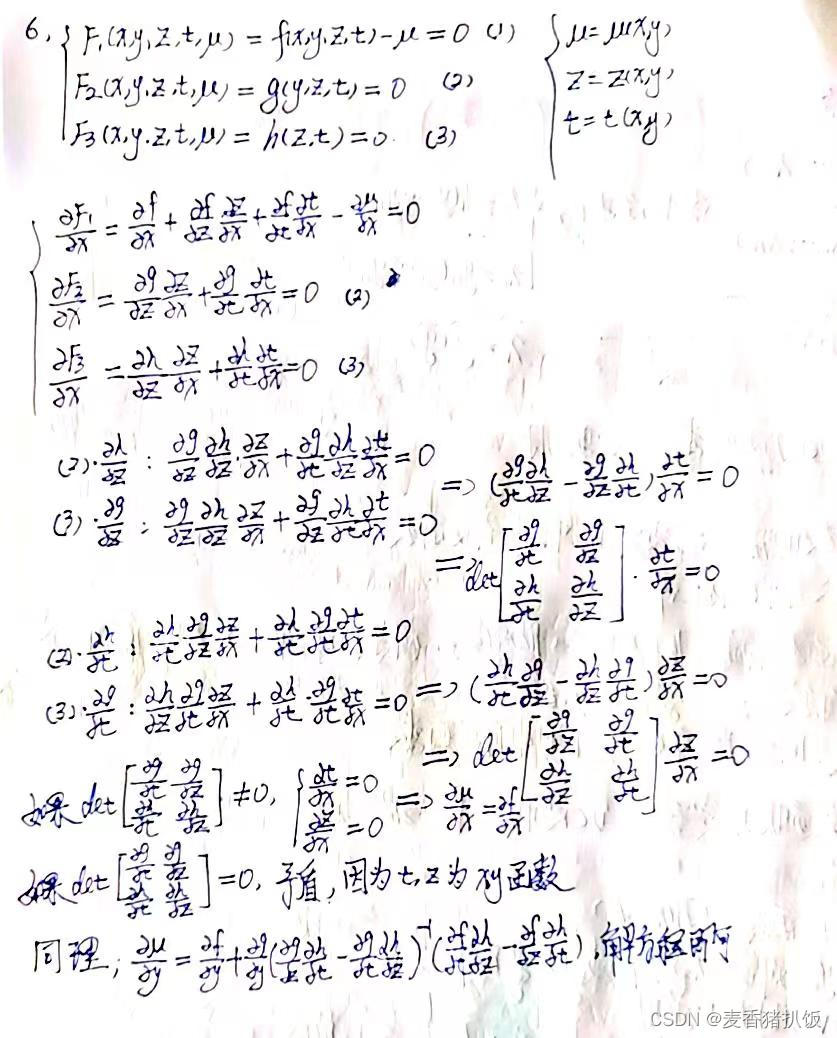 6. { F₁(x,y,z,t,μ) = f(x,y,z,t)-μ = 0 (1) { μ=μ(x,y)
F₂(x,y,z,t,μ) = g(y,z,t) = 0 (2) z=z(x,y)
F₃(x,y,z,t,μ) = h(z,t) = 0. (3) t=t(x,y)
{ ∂F₁/∂x = ∂f/∂x + ∂f/∂z ∂z/∂x + ∂f/∂t ∂t/∂x - ∂μ/∂x = 0
∂F₂/∂x = ∂g/∂z ∂z/∂x + ∂g/∂t ∂t/∂x = 0 (2)
∂F₃/∂x = ∂h/∂z ∂z/∂x + ∂h/∂t ∂t/∂x = 0 (3)
(2)·∂h/∂z : ∂g/∂z ∂h/∂z ∂z/∂x + ∂g/∂t ∂h/∂z ∂t/∂x = 0
(3)·∂g/∂z : ∂g/∂z ∂h/∂z ∂z/∂x + ∂g/∂z ∂h/∂t ∂t/∂x = 0
=> (∂g/∂t ∂h/∂z - ∂g/∂z ∂h/∂t) ∂t/∂x = 0
=> det[∂g/∂t ∂g/∂z; ∂h/∂t ∂h/∂z] · ∂t/∂x = 0
(2)·∂h/∂t : ∂h/∂t ∂g/∂z ∂z/∂x + ∂h/∂t ∂g/∂t ∂t/∂x = 0
(3)·∂g/∂t : ∂h/∂z ∂g/∂t ∂z/∂x + ∂h/∂t · ∂g/∂t ∂t/∂x = 0
=> (∂h/∂t ∂g/∂z - ∂h/∂z ∂g/∂t) ∂z/∂x = 0
=> det[∂g/∂z ∂g/∂t; ∂h/∂z ∂h/∂t] ∂z/∂x = 0
如果 det[∂g/∂t ∂g/∂z; ∂h/∂t ∂h/∂z] ≠ 0, { ∂t/∂x = 0 ∂z/∂x = 0 => ∂μ/∂x = ∂f/∂x
如果 det[∂g/∂t ∂g/∂z; ∂h/∂t ∂h/∂z] = 0, 矛盾, 因为 t, z 为 xy 函数
同理; ∂μ/∂y = ∂f/∂y + ∂g/∂y (∂g/∂z ∂h/∂t - ∂g/∂t ∂h/∂z)⁻¹ (∂f/∂t ∂h/∂z - ∂f/∂z ∂h/∂t), 解方程即可
CSDN @麦香猪扒饭